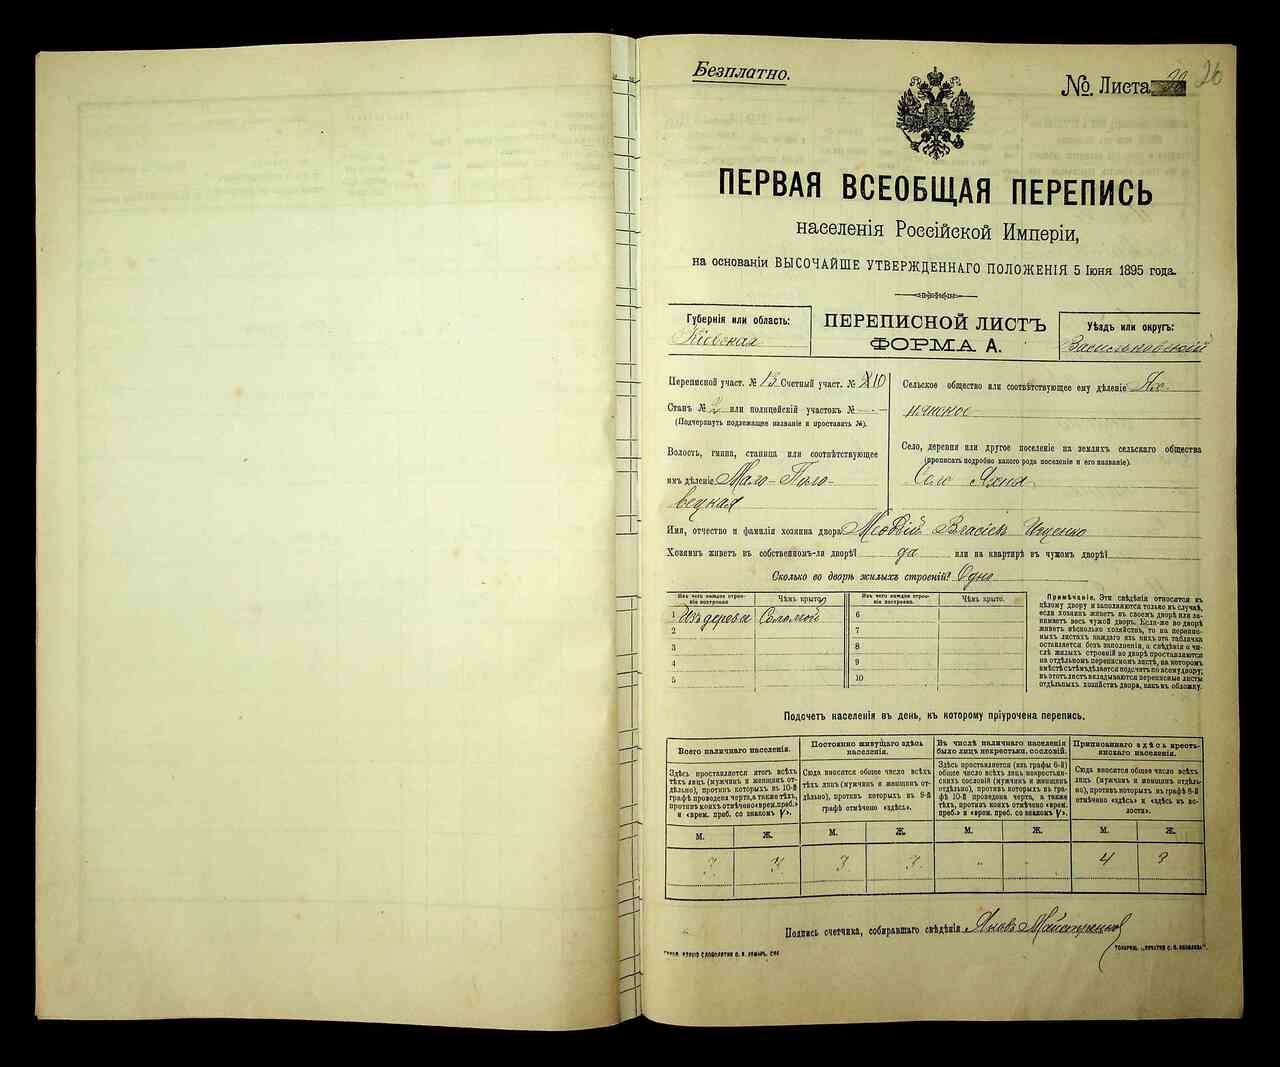 Безплатно.
№ Листа 26
ПЕРВАЯ ВСЕОБЩАЯ ПЕРЕПИСЬ
населенія Россійской Имперіи,
на основаніи ВЫСОЧАЙШЕ УТВЕРЖДЕННАГО ПОЛОЖЕНІЯ 5 Іюня 1895 года.
Губернія или область:
Кіевская
ПЕРЕПИСНОЙ ЛИСТЪ
ФОРМА А.
Уѣздъ или округъ:
Васильковскій
Переписной участ. № 13 Счетный участ. № 10
Станъ № 2 или полицейскій участокъ № —
(Подчеркнуть подлежащее названіе и проставить №).
Волость, гмина, станица или соотвѣтствующее
имъ дѣленіе Мало-Поло-
вецкая
Сельское общество или соотвѣтствующее ему дѣленіе Ях-
нянское
Село, деревня или другое поселеніе на земляхъ сельскаго общества
(прописать подробно какого рода поселеніе и его названіе).
Село Яхня
Имя, отчество и фамилія хозяина двора Меѳодій Власіев Ищенко
Хозяинъ живетъ въ собственномъ-ли дворѣ? да или на квартирѣ въ чужомъ дворѣ?
Сколько во дворѣ жилыхъ строеній? Одно
Изъ чего каждое строе-
ніе построено
Чѣмъ крыто.
Изъ чего каждое строе-
ніе построено.
Чѣмъ крыто.
1 Изъ дерева Соломой
2
3
4
5
6
7
8
9
10
Примѣчаніе. Эти свѣдѣнія относятся къ
цѣлому двору и заполняются только въ случаѣ,
если хозяинъ живетъ въ своемъ дворѣ или за-
нимаетъ весь чужой дворъ. Если-же во дворѣ
живетъ нѣсколько хозяйствъ, то на перепис-
ныхъ листахъ каждаго изъ нихъ эта табличка
оставляется безъ заполненія, а свѣдѣнія о чи-
слѣ жилыхъ строеній во дворѣ проставляются
на отдѣльномъ переписномъ листѣ, на которомъ
вмѣстѣ съ тѣмъ дѣлается подсчетъ по всему двору;
въ этотъ листъ вкладываются переписные листы
отдѣльныхъ хозяйствъ двора, какъ въ обложку.
Подсчетъ населенія въ день, къ которому пріурочена перепись.
Всего наличнаго населенія.
Здѣсь проставляется итогъ всѣхъ
тѣхъ лиц (мужчинъ и женщинъ от-
дѣльно), противъ которыхъ въ 10-й
графѣ проведена черта, а также тѣхъ,
противъ коихъ отмѣчено «врем. преб.»
и «врем. преб. со знакомъ V».
Постоянно живущаго здѣсь
населенія.
Сюда вносится общее число всѣхъ
тѣхъ лицъ (мужчинъ и женщинъ от-
дѣльно), противъ которыхъ въ 9-й
графѣ отмѣчено «здѣсь».
Въ числѣ наличнаго населенія
было лицъ некрестьян. сословій.
Здѣсь проставляется (изъ графы 6-й)
общее число всѣхъ лицъ некрестьян-
скихъ сословій (мужчинъ и женщинъ
отдѣльно), противъ которыхъ въ гра-
фѣ 10-й проведена черта, а также
тѣхъ, противъ коихъ отмѣчено «врем.
преб.» и «врем. преб. со знакомъ V».
Приписаннаго здѣсь кресть-
янскаго населенія.
Сюда вносится общее число всѣхъ
лицъ (мужчинъ и женщинъ отдѣль-
но), противъ которыхъ въ графѣ 8-й
отмѣчено «здѣсь» и «здѣсь въ во-
лости».
М. Ж. М. Ж. М. Ж. М. Ж.
3 3 3 3 „ „ 4 3
Подпись счетчика, собиравшаго свѣдѣнія Яковъ Майстренко